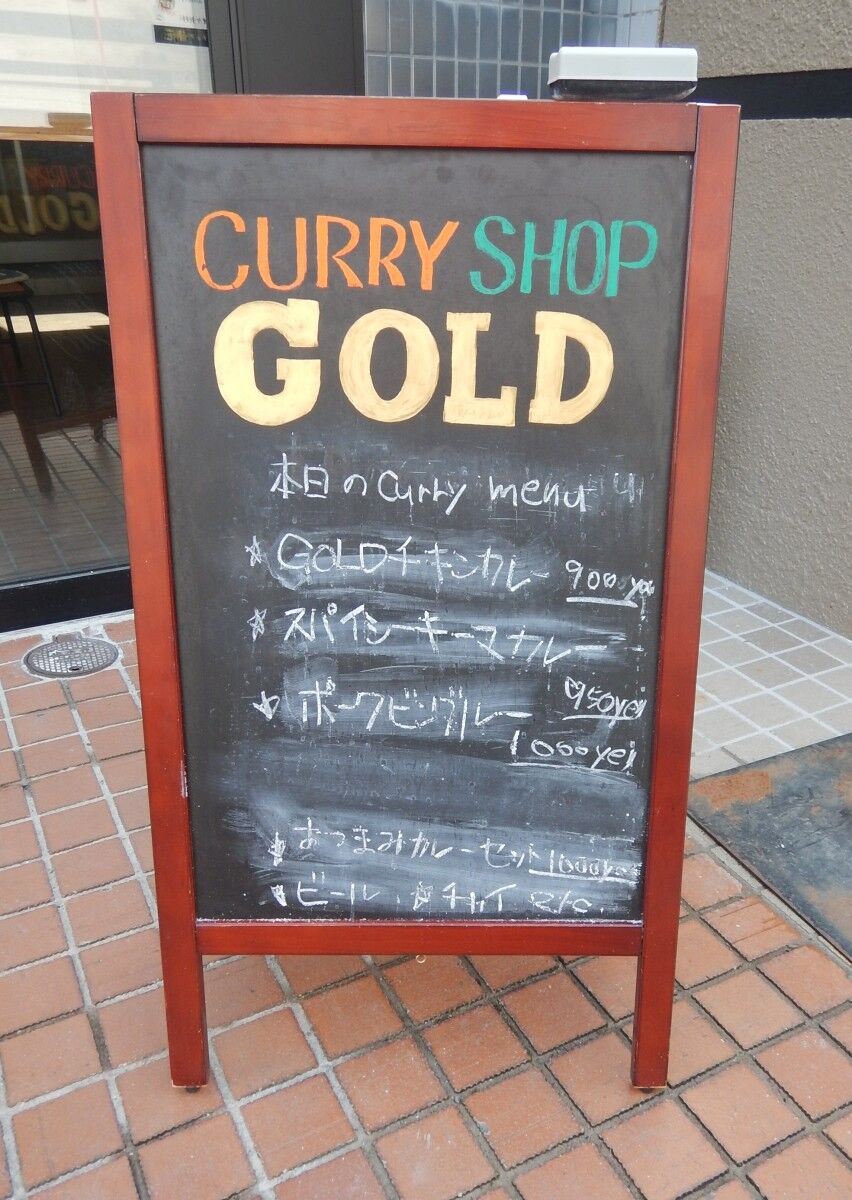 CURRY SHOP
GOLD
本日のCurry menu
☆ GOLDチキンカレー 900yen
☆ スパイシーキーマカレー
950yei
☆ ポークビンダルー
1000yei
おつまみカレーセット 1000ye
ビール ☆チャイ etc.